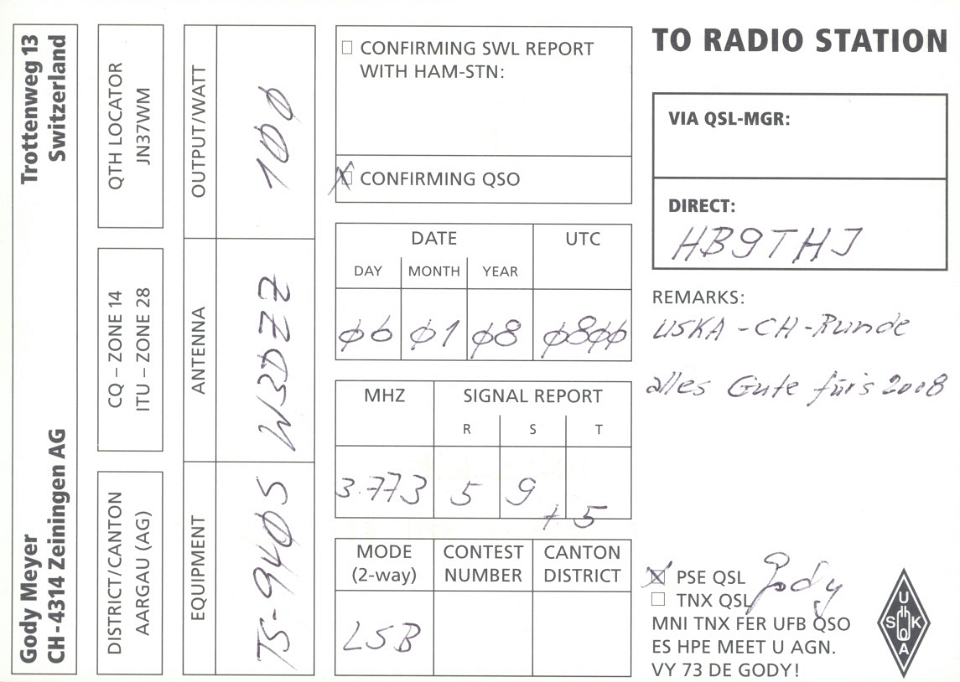 Gody Meyer Trottenweg 13
CH-4314 Zeiningen AG Switzerland
DISTRICT/CANTON
AARGAU (AG)
CQ – ZONE 14
ITU – ZONE 28
QTH LOCATOR
JN37WM
EQUIPMENT
TS-94Ø5
ANTENNA
W3DZZ
OUTPUT/WATT
1ØØ
CONFIRMING SWL REPORT
WITH HAM-STN:
X CONFIRMING QSO
DATE UTC
DAY MONTH YEAR
Ø6 Ø1 Ø8 Ø8ØØ
MHZ SIGNAL REPORT
R S T
3.773 5 9 + 5
MODE CONTEST CANTON
(2-way) NUMBER DISTRICT
LSB
TO RADIO STATION
VIA QSL-MGR:
DIRECT:
HB9THJ
REMARKS:
USKA -CH-Runde
alles Gute für's 2008
X PSE QSL Gody
TNX QSL
MNI TNX FER UFB QSO
ES HPE MEET U AGN.
VY 73 DE GODY!
USKA